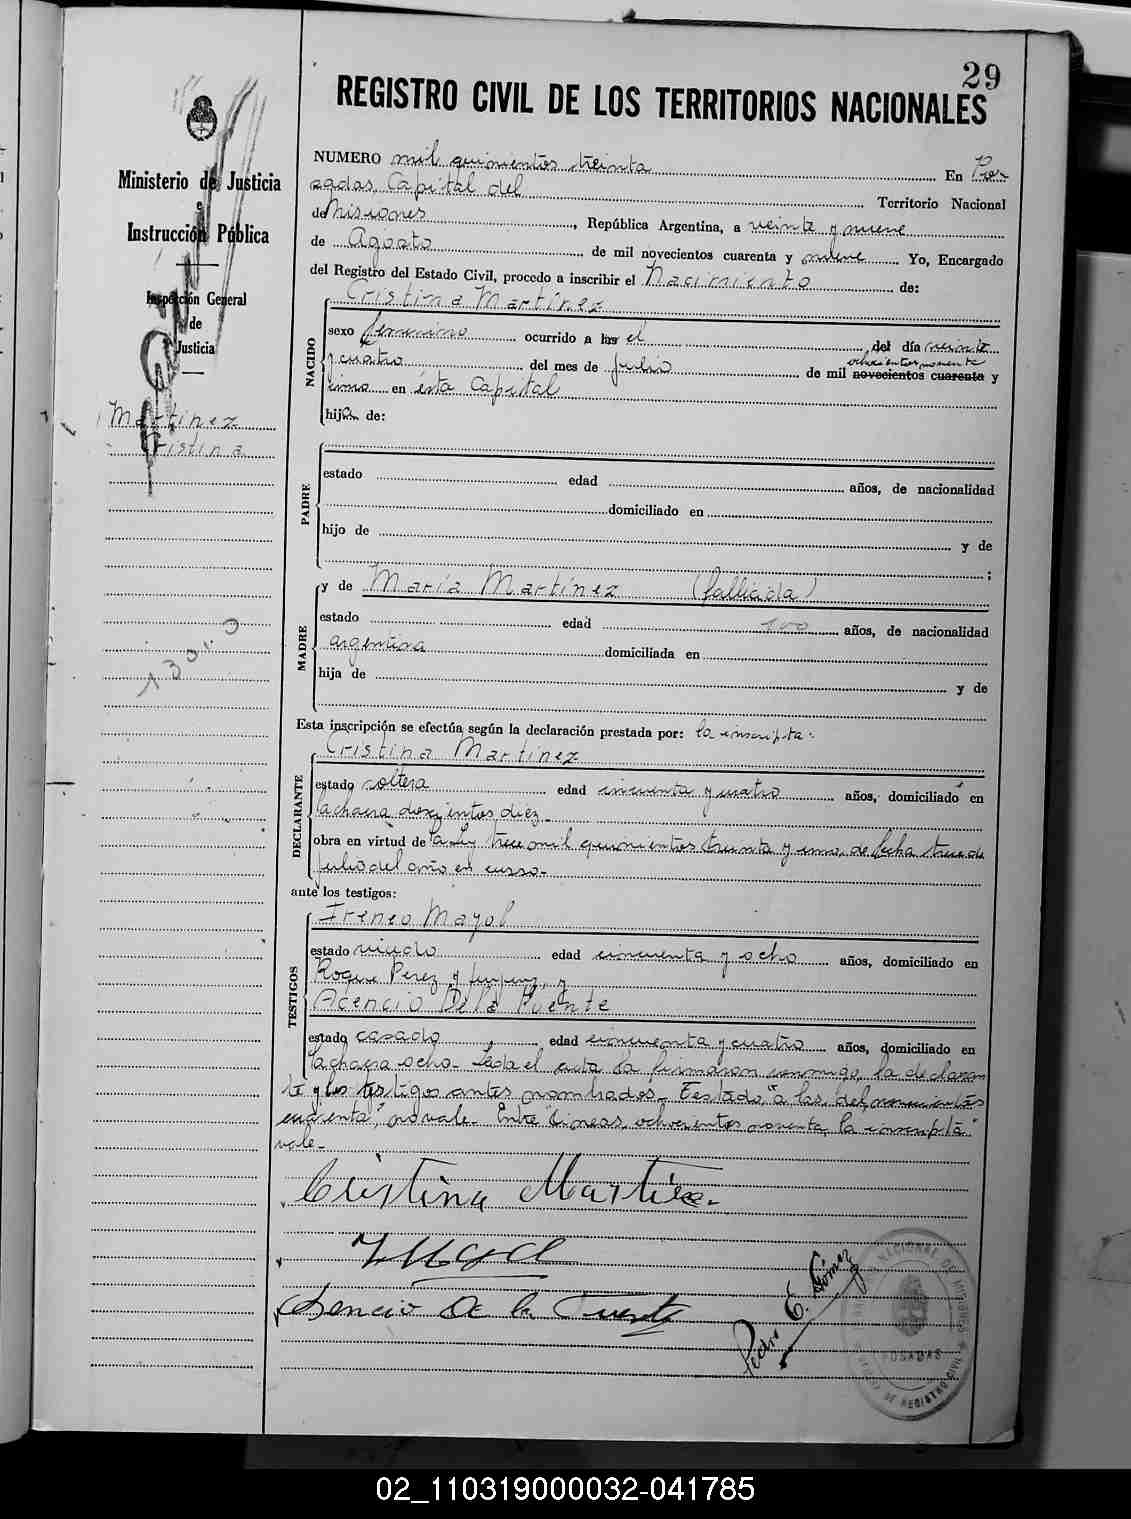 29
REGISTRO CIVIL DE LOS TERRITORIOS NACIONALES
Ministerio de Justicia
e
Instrucción Pública
Inspección General
de
Justicia
Martinez
Cristina
NUMERO mil quinientos treinta En Po-
sadas, Capital del Territorio Nacional
de Misiones, República Argentina, a veinte y nueve
de Agosto de mil novecientos cuarenta y nueve. Yo, Encargado
del Registro del Estado Civil, procedo a inscribir el Nacimiento de:
NACIDO
Cristina Martínez
sexo femenino ocurrido a las el del día veinte
y cuatro del mes de julio de mil novecientos cuarenta y
ochocientos noventa
cinco en ésta Capital
hija de:
PADRE
estado edad años, de nacionalidad
domiciliado en
hijo de y de
;
MADRE
y de María Martínez (fallecida)
estado edad 100 años, de nacionalidad
argentina domiciliada en
hija de y de
Esta inscripción se efectúa según la declaración prestada por: la inscripta:
DECLARANTE
Cristina Martínez
estado soltera edad cincuenta y cuatro años, domiciliado en
la chacra doscientos diez.
obra en virtud de la Ley trece mil quinientos treinta y uno, de fecha trece de
julio del año en curso.
ante los testigos:
TESTIGOS
Ireneo Mayol
estado viudo edad cincuenta y ocho años, domiciliado en
Roque Perez y
Acencio De la Puente
estado casado edad cincuenta y cuatro años, domiciliado en
la chacra ocho. Leída el acta la firmaron conmigo, la declaran
te y los testigos antes nombrados. Testado "a las, del, novecientos
cuarenta", no vale. Entre líneas, ochocientos noventa, la inscripta"
vale.
Cristina Martinez
Acencio De la Puente
Pedro E. Gómez
POSADAS
02_110319000032-041785